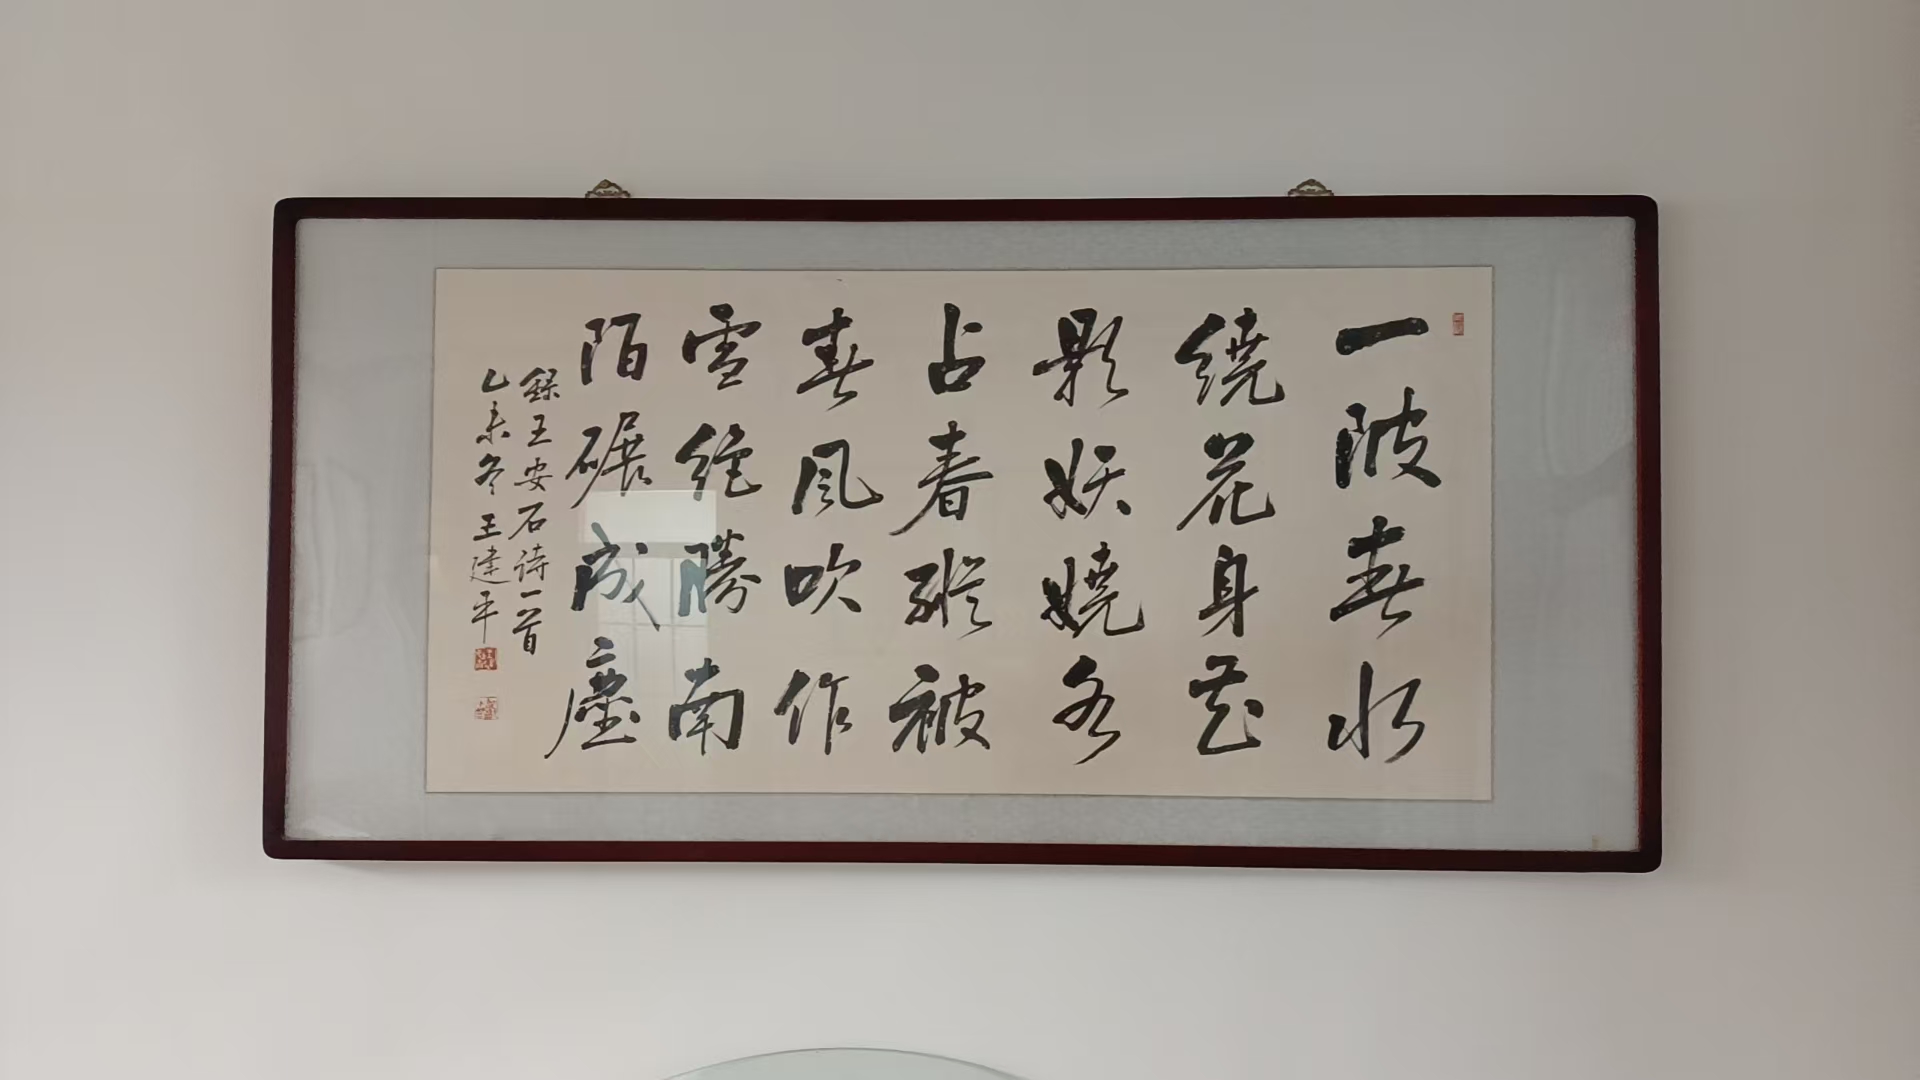 一陂春水
绕花身花
影妖娆各
占春纵被
春风吹作
雪绝胜南
陌碾成尘
録王安石诗一首
乙未冬王建平